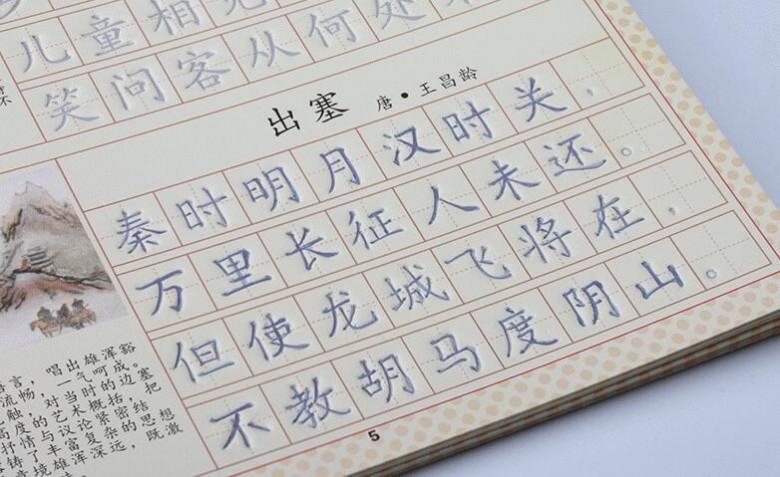 儿童相见
笑问客从何处
出塞
唐·王昌龄
秦时明月汉时关，
万里长征人未还。
但使龙城飞将在，
不教胡马度阴山。
唱出雄浑豁
流畅，一气呵成。
对当时的边塞
的艺术概括，把
抒情与议论紧密结
铸了丰富复杂的思想
意境雄浑深远，既激
5